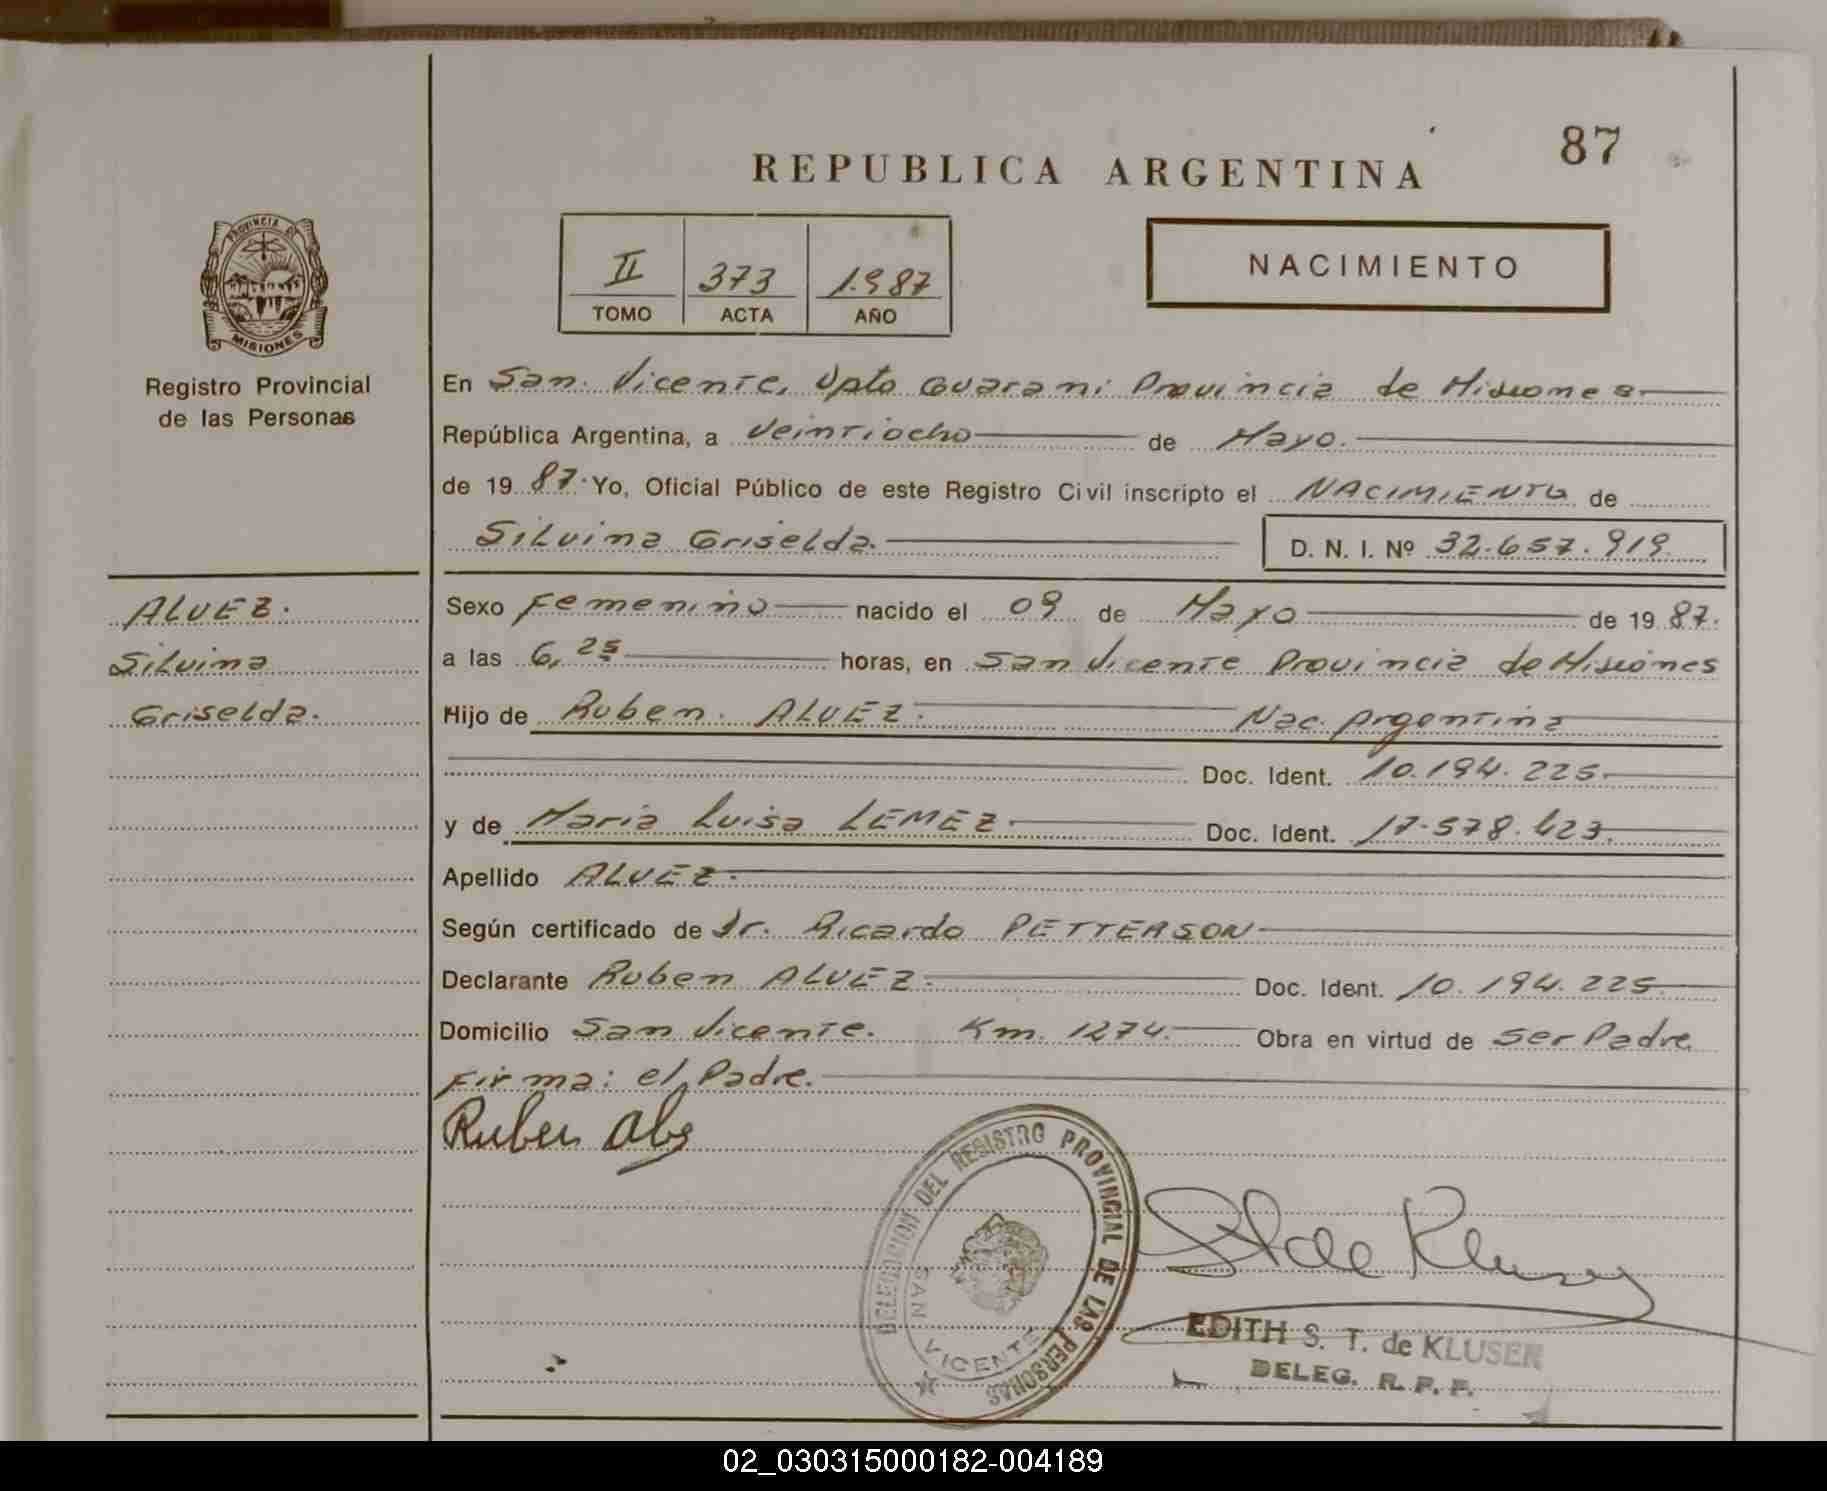 87
REPUBLICA ARGENTINA
II 373 1.987
TOMO ACTA AÑO
NACIMIENTO
PROVINCIA DE
MISIONES
Registro Provincial
de las Personas
En San Vicente, Dpto Guarani Provincia de Misiones
República Argentina, a Veintiocho de Mayo.
de 19 87. Yo, Oficial Público de este Registro Civil inscripto el NACIMIENTO de
Silvina Griselda. D. N. I. Nº 32.657.919
ALVEZ.
Silvina
Griselda.
Sexo Femenino nacido el 09 de Mayo de 19 87.
a las 6,25 horas, en San Vicente Provincia de Misiones
Hijo de Ruben ALVEZ. Nac. Argentina
Doc. Ident. 10.194.225
y de Maria Luisa LEMEZ Doc. Ident. 17.578.423.
Apellido ALVEZ.
Según certificado de Dr. Ricardo PETTERSON
Declarante Ruben ALVEZ. Doc. Ident. 10.194.225
Domicilio San Vicente. Km. 1274. Obra en virtud de ser Padre
Firma: el Padre.
Ruben
DELEGACION DEL REGISTRO PROVINCIAL DE LAS PERSONAS
SAN VICENTE
de Kluser
EDITH S. T. de KLUSER
DELEG. R. P. P.
02_030315000182-004189